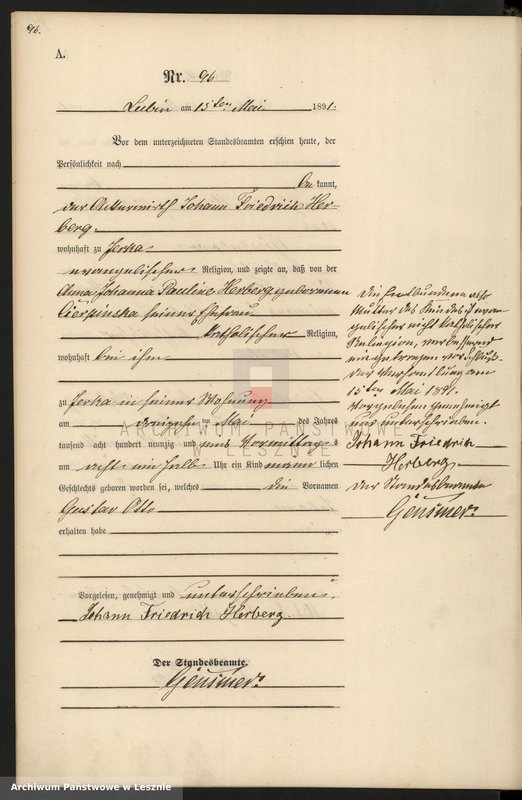 96.
A.
Nr. 96
Lubin am 15ten Mai 1891.
Vor dem unterzeichneten Standesbeamten erschien heute, der
Persönlichkeit nach
be kannt,
der Ackerwirth Johann Friedrich Her-
berg.
wohnhaft zu Jerka
evangelischer Religion, und zeigte an, daß von der
Anna Johanna Pauline Herberg geborenen
Cierpinska seiner Ehefrau
katholischer Religion,
wohnhaft bei ihm
zu Jerka in seiner Wohnung
am dreizehnten Mai des Jahres
tausend acht hundert neunzig und eins Vormittags
um acht ein halb Uhr ein Kind männlichen
Geschlechts geboren worden sei, welches die Vornamen
Gustav Otto
erhalten habe
Vorgelesen, genehmigt und unterschrieben.
Johann Friedrich Herberg.
Der Standesbeamte.
Gensmer.
Die Entbundene also
Mutter des Kindes ist evan-
gelischer nicht katholischer
Religion, verbessernd
eingetragen vor Schluß
der Verhandlung am
15ten Mai 1891.
Vorgelesen genehmigt
und unterschrieben.
Johann Friedrich
Herberg.
Der Standesbeamte
Gensmer.
ARCHIWUM PAŃSTWOWE
W LESZNIE
Archiwum Państwowe w Lesznie